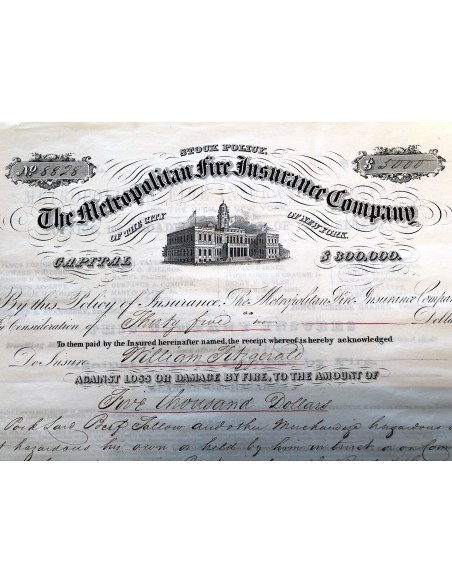 STOCK POLICY.
No 8828
$ 5000
The Metropolitan Fire Insurance Company,
OF THE CITY OF NEW YORK.
CAPITAL $ 300,000.
By this Policy of Insurance, The Metropolitan Fire Insurance Company
Consideration of Thirty five Dollars
To them paid by the Insured hereinafter named, the receipt whereof is hereby acknowledged
Do Insure William Fitzgerald
AGAINST LOSS OR DAMAGE BY FIRE, TO THE AMOUNT OF
Five thousand Dollars
Pork Lard Beef Tallow and other Merchandize hazardous
hazardous his own or held by him in trust or